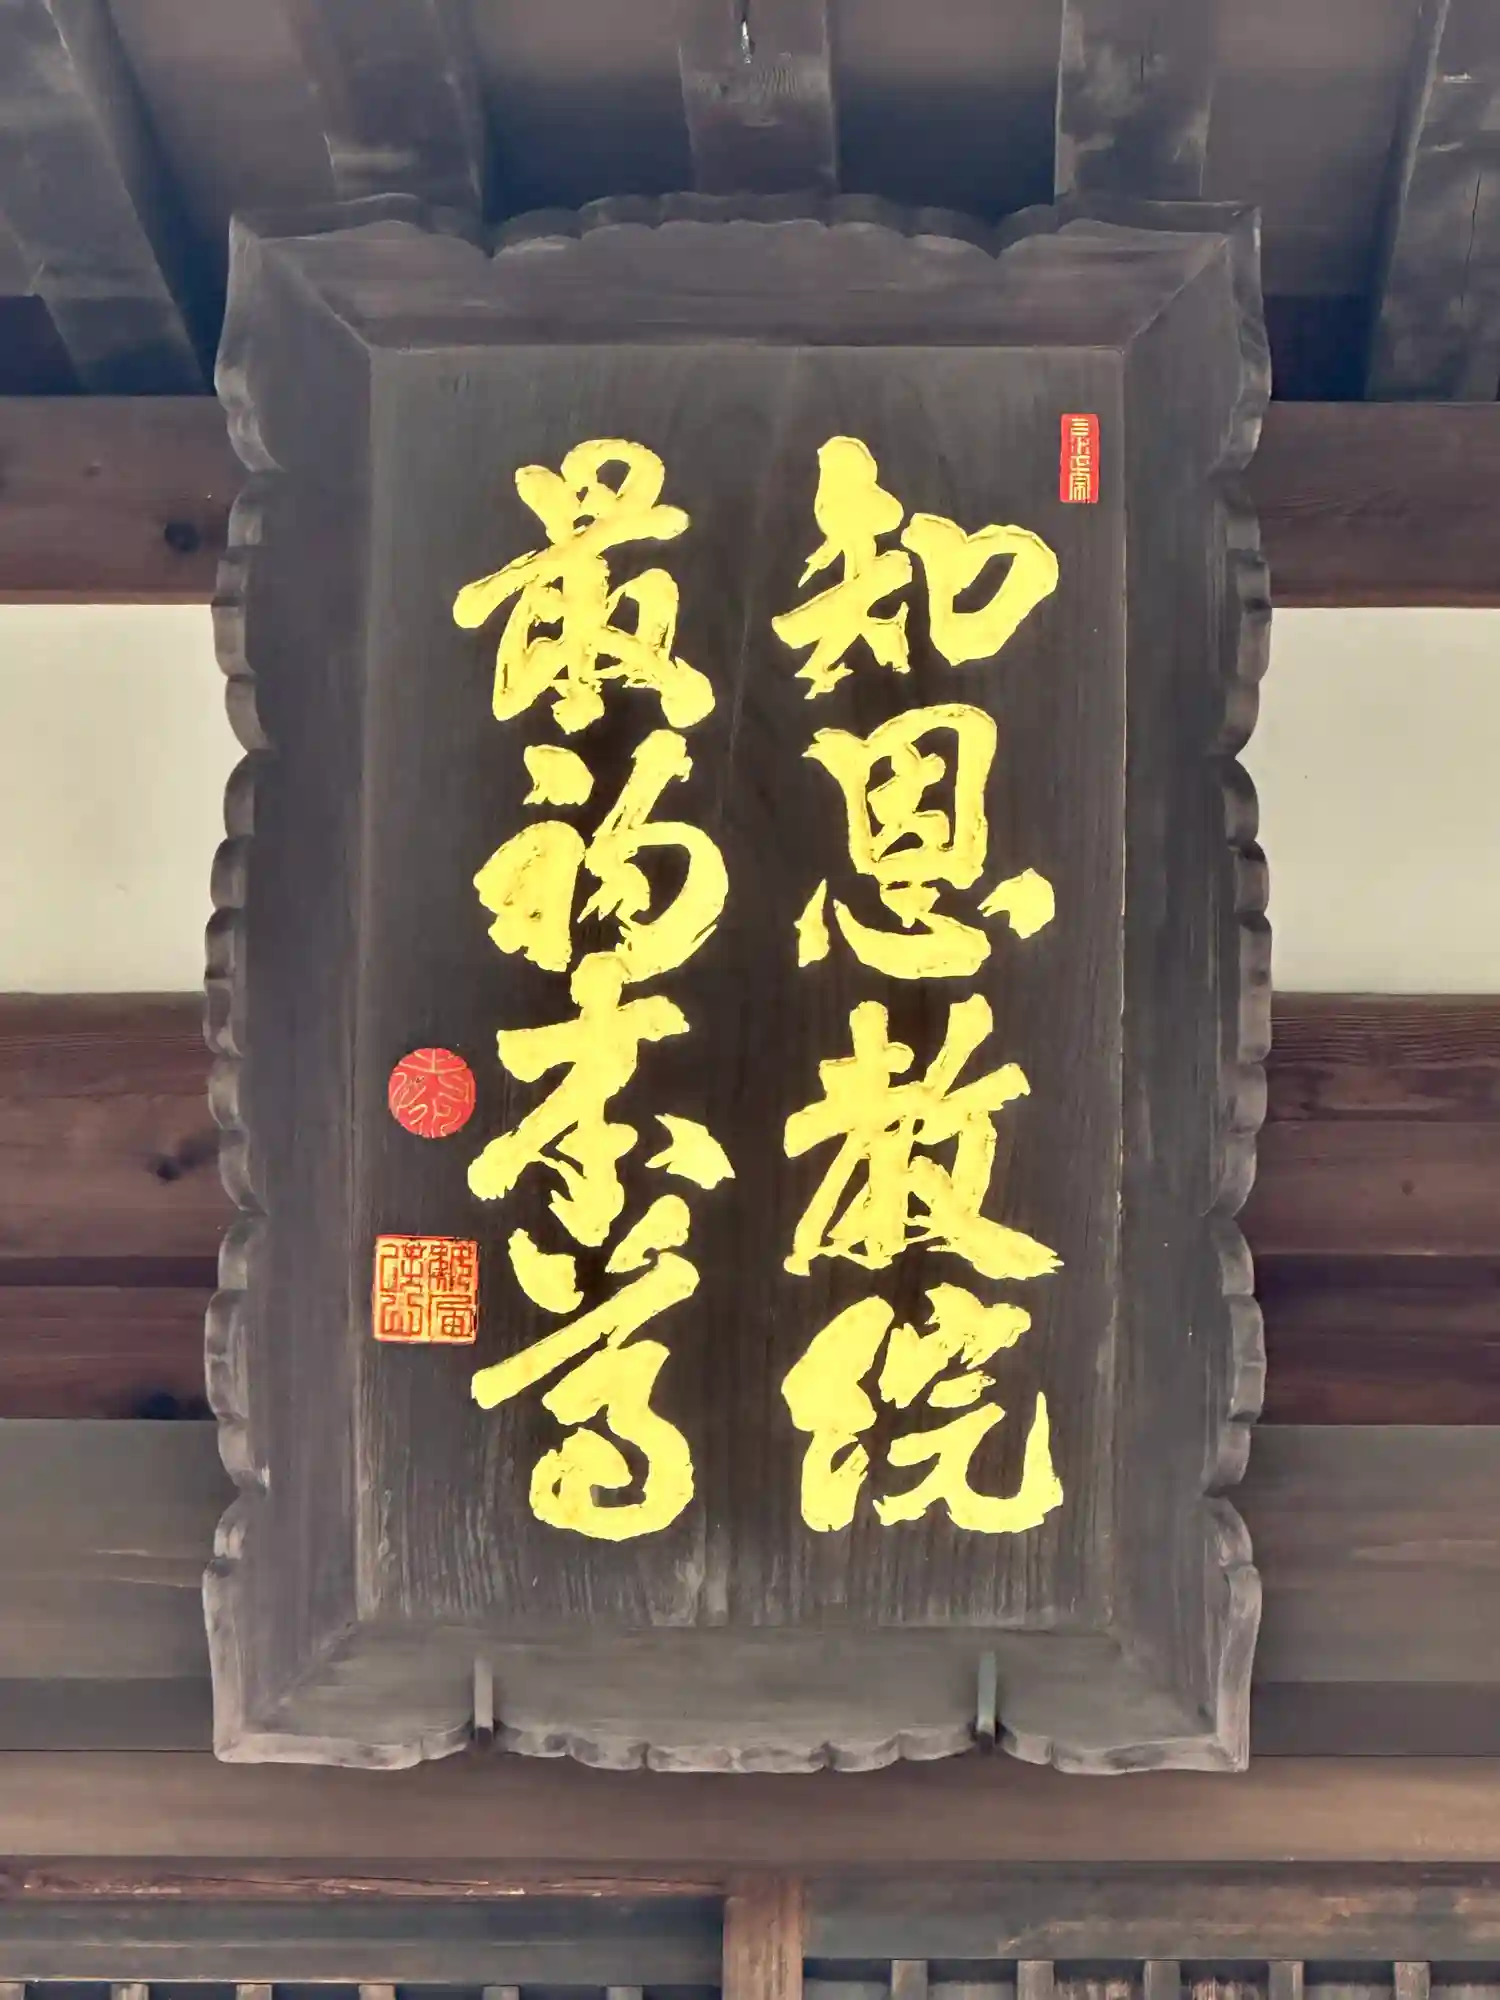 知恩教院
最初本尊